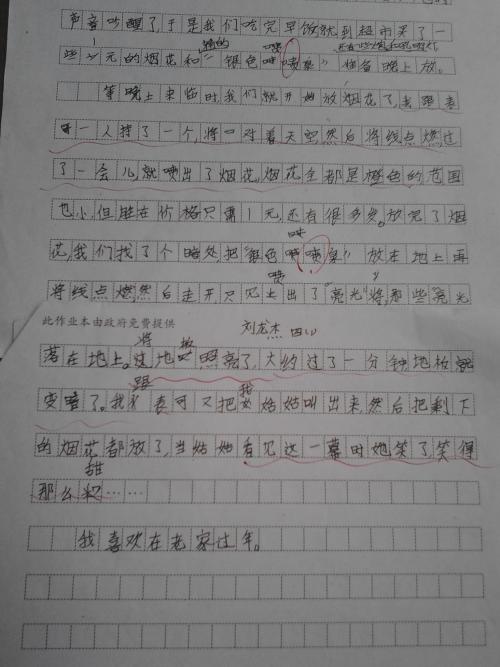 声音吵醒了,于是我们吃完早饭就到超市买了一
些一元的烟花和"银色喷泉"准备晚上放。
等晚上来临时,我们就开始放烟花了,
一人持了一个,将口对着天空然后将线点燃过
了一会儿,就喷出了烟花,烟花全都是橙色的范围
也小,但胜在价格只需1元,还有很多多。放完了烟
花,我们找了个暗处,把"银色喷泉"放在地上再
将线点燃然后走开只见上出了"亮光"将那些"亮光
此作业本由政府免费提供
刘龙杰 四(1)
落在地上。将地照亮了,大约过了一分钟地板就
变暗了。我和表可又把姑姑叫出来,然后把剩下
的烟花都放了,当姑姑看见这一幕时她笑了笑得
那么甜……
我喜欢在老家过年。